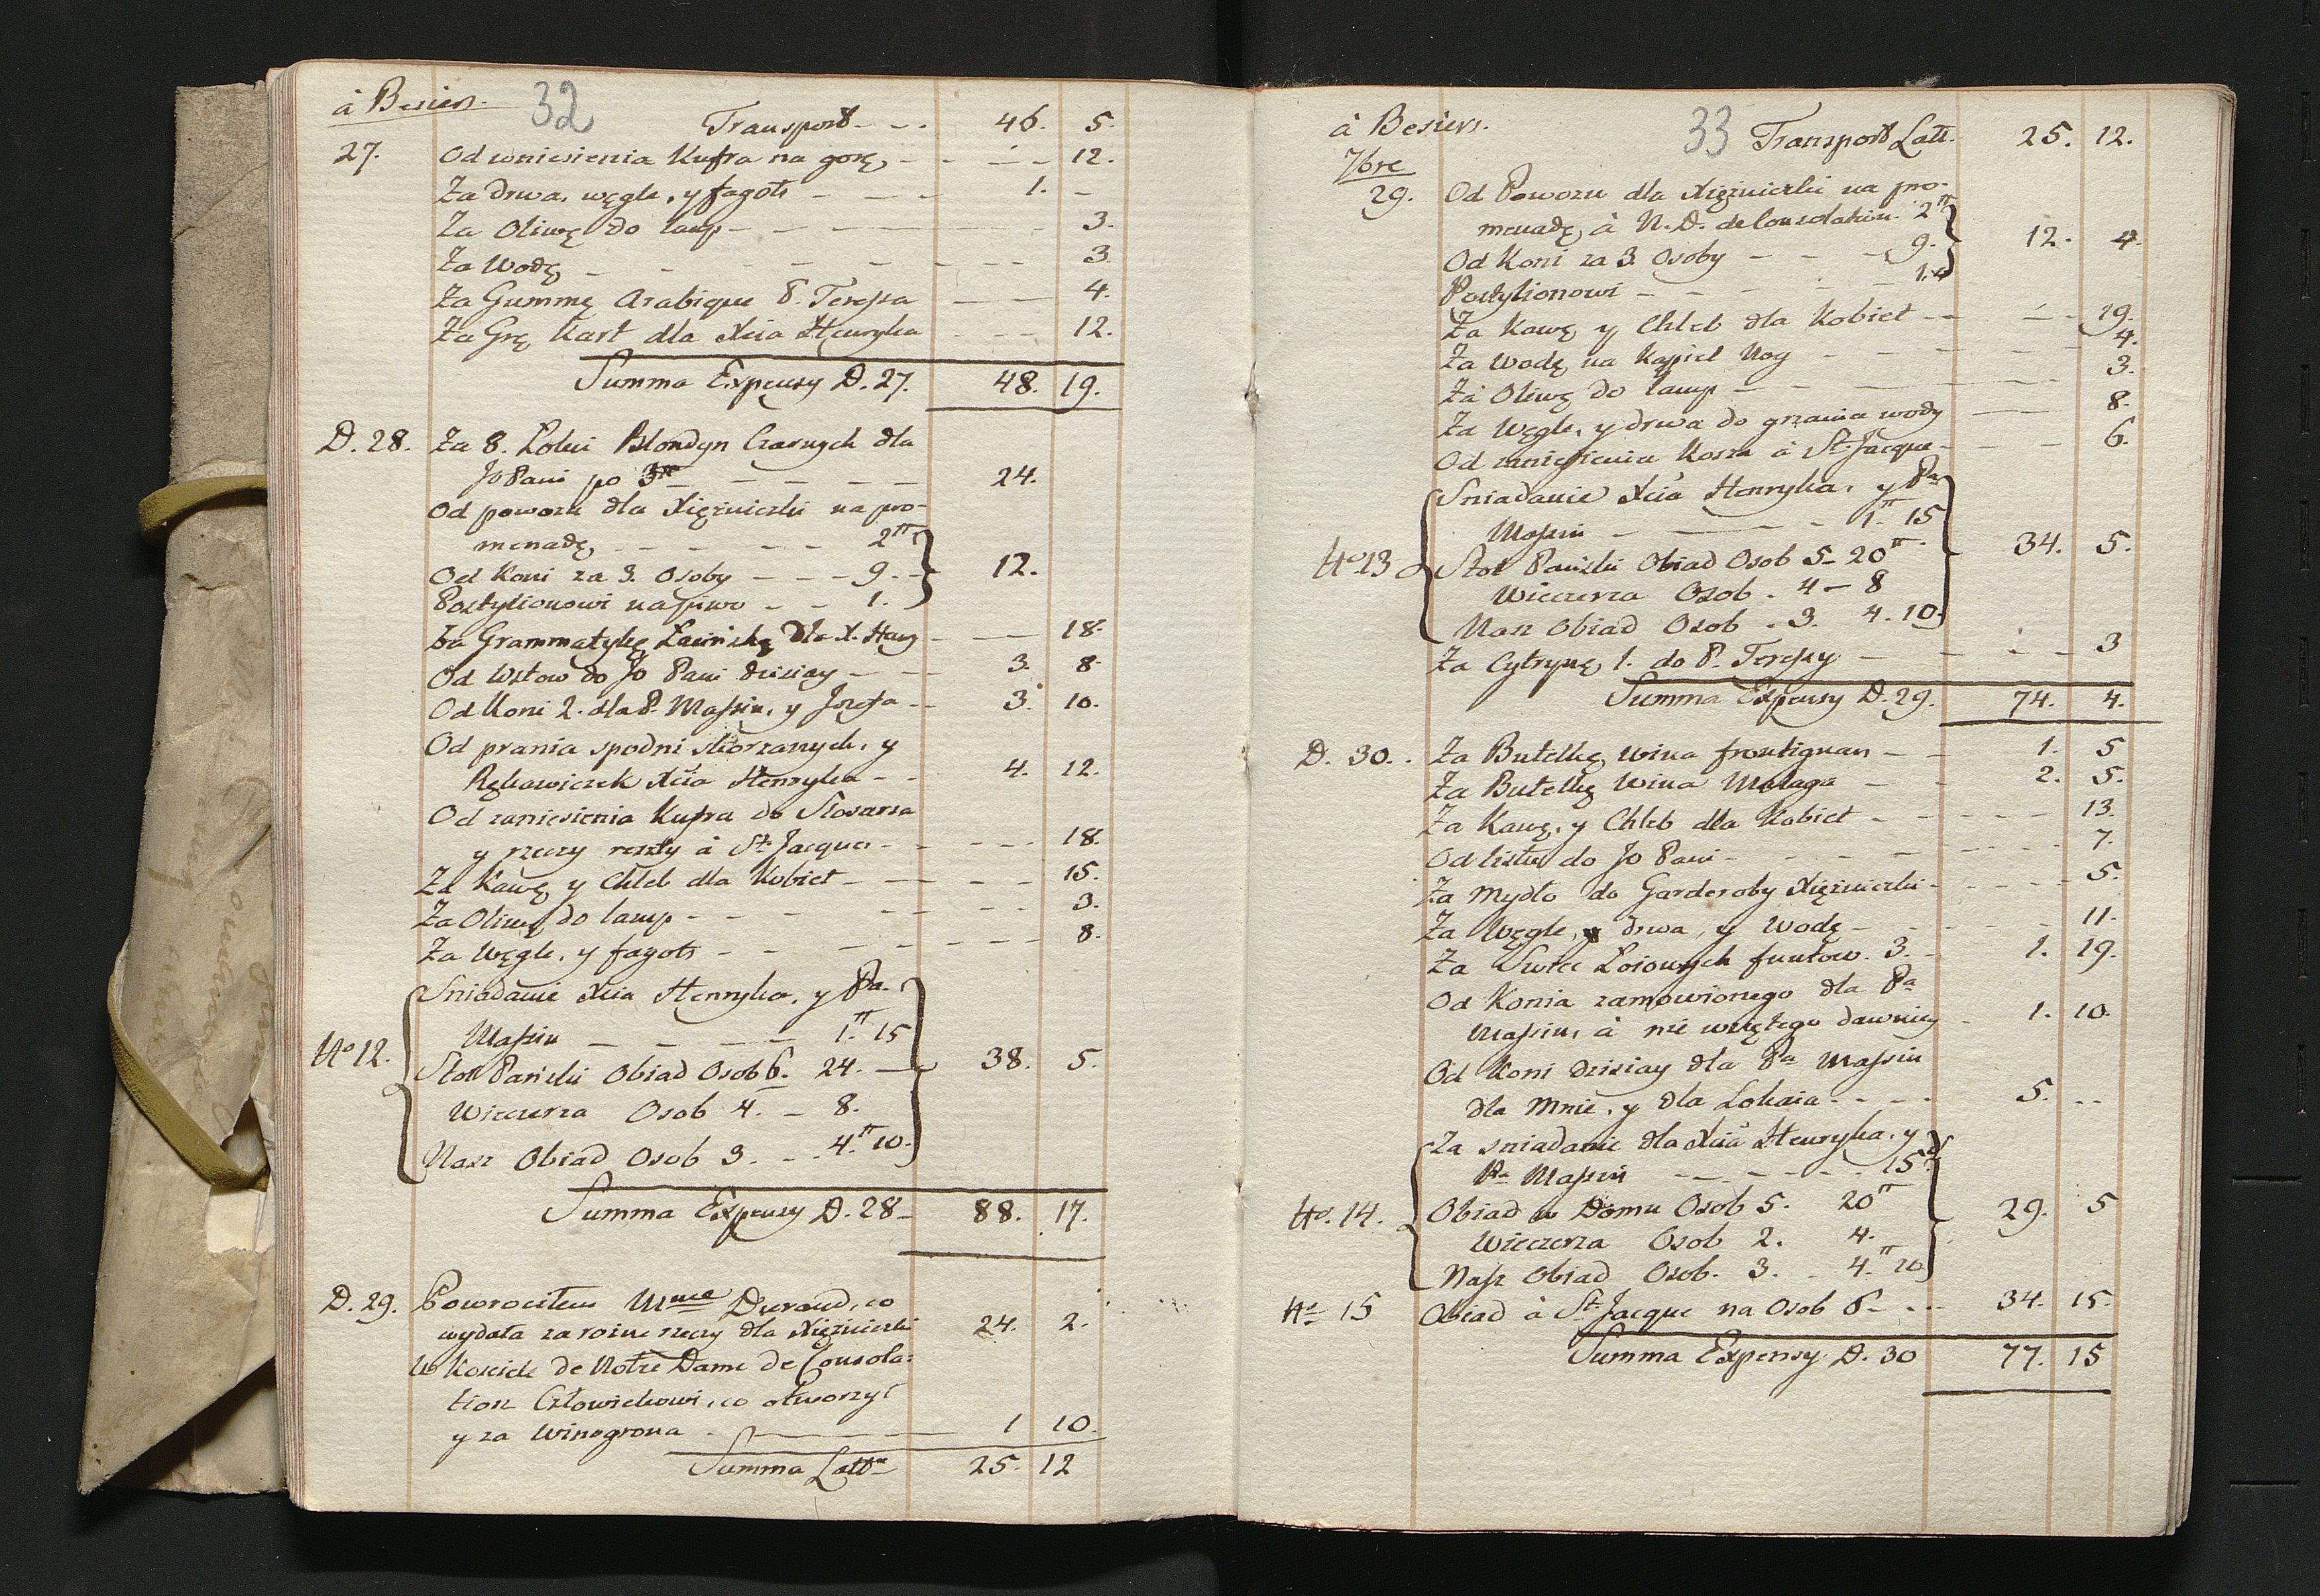 à Besiers.
32
Transport - - . 46. 5.
27. Od wniesienia Kufra na gorę, - - - - 12.
Za drwa, węgle, y fagots - - - 1. -
Za Oliwę do lamp - - - - 3.
Za Wodę - - - - - - 3
Za Gummę Arabique P. Teressa - - 4.
Za Grę Kart dla Xcia Henryka - - 12.
Summa Expensy D. 27. 48. 19.
D. 28. Za 8. Łokci Blondyn Czarnych dla
Jo Pani po 3 - - - - - 24.
Od powozu dla Xiężniczki na pro-
menadę, - - - - - 2tt
Od Koni za 3. Osoby - - - 9. - 12.
Postylionowi na piwo - - 1.
Za Grammatykę Łacińską dla X. Hen - - 18.
Od Listow do Jo Pani dzisiay - - 3. 8
Od Koni 2. dla P. Massin, y Jozefa - - 3. 10.
Od prania spodni skorzanych, y
Rękawiczek Xcia Henryka - - 4. 12.
Od zaniesienia Kufra do Slosarza
y rzeczy reszty à St. Jacques - - - - 18.
Za Kawę, y Chleb dla Kobiet - - - - 15.
Za Oliwę do lamp - - - - - - 3.
Za Węgle, y fagots - - - - - - - 8.
Sniadanie Xcia Henryka, y Pa.
Massin - - - - 1.tt 15
No 12. Stoł Pański Obiad Osob 6. 24. - 38. 5.
Wieczerza Osob 4. - 8.
Nasz Obiad Osob 3. - - 4.tt 10.
Summa Expensy D. 28 - 88. 17.
D. 29. Powrociłem Mme Durand, co
wydała za rożne rzeczy dla Xiężniczki 24. 2.
W Kosciele de Notre Dame de Consola=
tion Człowiekowi, co otworzył
y za Winogrona - - - 1 10.
Summa Latt 25. 12
à Besiers.
33
Transport Latt. 25. 12.
7bre
29. Od Powozu dla Xiężniczki na pro-
menadę, à N. D. de Consolation. 2tt
Od Koni za 3. Osoby - - - 9. 12. 4.
Postylionowi - - - - - 1.4
Za Kawę, y Chleb dla Kobiet - - - - 19.
Za Wodę, na Kąpiel Nog - - - - - 4.
Za Oliwę do lamp - - - - - 3.
Za Węgle, y drwa do grzania wody - - 8.
Od zaniesienia Kosza à St. Jacque - - - 6.
Sniadanie Xcia Henryka, y Pa
Massin - - - - 1.tt 15
No 13 Stoł Pański Obiad Osob 5 - 20tt 34. 5.
Wieczerza Osob - 4 - 8
Nasz Obiad Osob - 3. 4. 10.
Za Cytrynę, 1. do P. Teressy - - - - 3
Summa Expensy D. 29. 74. 4.
D. 30. Za Butelkę, wina frontignan - - 1. 5
Za Butelkę Wina Malaga - - 2. 5.
Za Kawę, y Chleb dla Kobiet - - - - - 13.
Od listu do Jo Pani - - - - - - - 7.
Za Mydło do Garderoby Xiężniczki - - - - 5.
Za Węgle, drwa, y Wodę - - - - - 11.
Za Swiec Łoiowych funtow. 3. - 1. 19.
Od Konia zamowionego dla Pa
Massin, à nie wziętego dawniey - 1. 10.
Od Koni dzisiay dla Pa Massin
dla Mnie, y dla Lokaia - - - - 5. - -
Za sniadanie dla Xcia Henryka, y
Pa Massin - - - - - 15
No. 14. Obiad w Domu Osob 5. 20tt 29. 5
Wieczerza Osob 2. 4.
Nasz Obiad Osob. 3. - 4.tt 10
No 15 Obiad à St. Jacque na Osob 6 - . . 34. 15.
Summa Expensy D. 30 77. 15